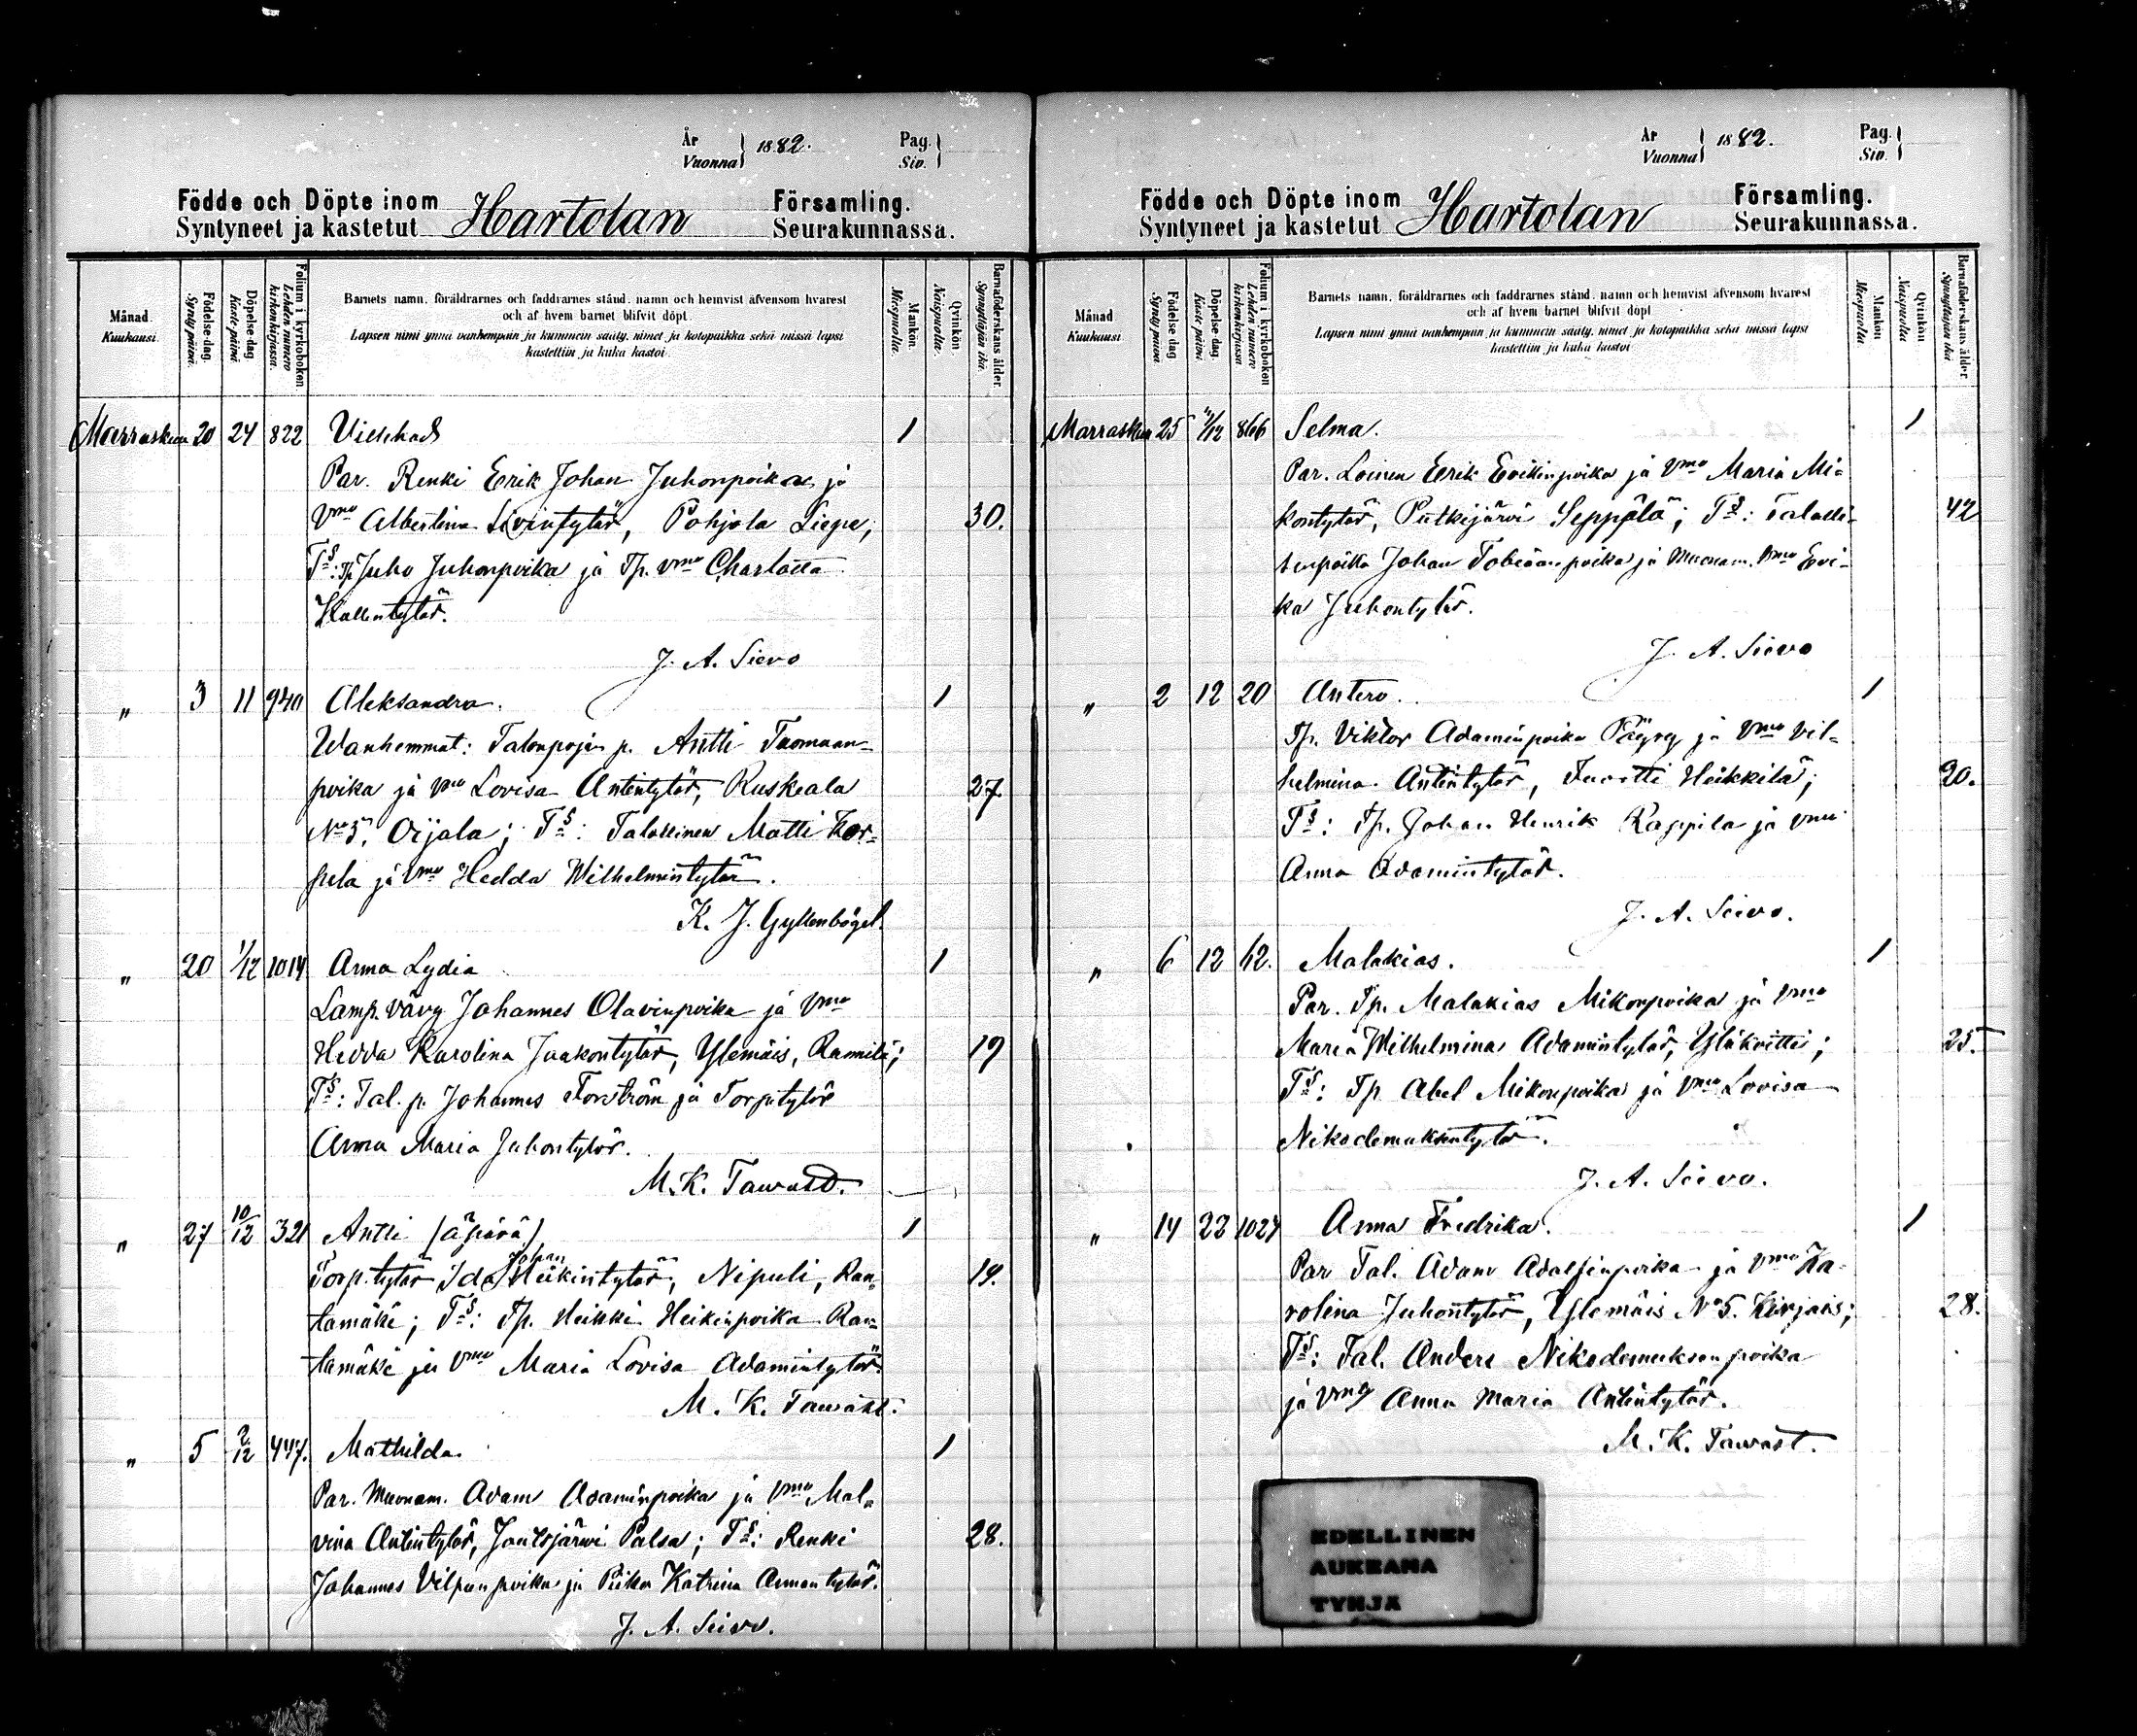 År
Vuonna
1882.
Pag.
Siv.
Födde och Döpte inom
Syntyneet ja kastetut
Hartolan
Församling.
Seurakunnassa.
Månad
Kuukausi.
Födelse-dag.
Synty-päivä.
Döpelse-dag.
Kaste-päivä.
Folium i kyrkoboken.
Lehden numero kirkonkirjassa.
Barnets namn, föräldrarnes och faddrarnes stånd, namn och hemvist äfvensom hvarest
och af hvem barnet blifvit döpt.
Lapsen nimi ynnä vanhempain ja kummein sääty, nimet ja kotopaikka sekä missä lapsi
kastettiin ja kuka kastoi.
Mankön.
Miespuolia.
Qvinkön.
Naispuolia.
Barnaföderskans ålder.
Synnyttäjän ikä.
Marraskuu 20 24 822 1
Par. Renki Erik Johan Juhonpoika ja
Vmo Albertina, Pohjola Liepe; 30.
Ts: Tp Juho Juhonpoika ja Tp. vmo Charlotta
Kallentytär.
J. A. Sievo
" 3 11 940 Aleksandra. 1
Wanhemmat: Talonpojan p. Antti Tuomaan-
poika ja Vmo Lovisa Antintytär, Ruskeala 27
No 5, Oijala; Ts: Talollinen Matti Kor-
pela ja Vmo Hedda Wilhelmintytär.
K. J. Gyllenbögel.
" 20 1/12 1014 Anna Lydia 1
Lamp. vävy Johannes Olavinpoika ja Vmo
Hedda Karolina Jaakontytär, Ylemäis, Rannila; 19
Ts: Tal. p. Johannes Forström ja Torp.tytär
Anna Maria Juhontytär.
M. K. Tawast.
" 27 10/12 321 Antti (äpärä) 1
Johan
Torp. tytär Ida Heikintytär, Nipuli, Ran- 19.
tamäki; Ts: Tp. Heikki Heikinpoika Ran-
tamäki ja Vmo Maria Lovisa Adamintytär.
M. K. Tawast.
" 5 2/12 447. Mathilda. 1
Par. Muonam. Adam Adaminpoika ja Vmo Mal-
vina Antintytär, Joutsjärwi Palsa; Ts: Renki 28.
Johannes Vilpunpoika ja Piika Katrina Annantytär.
J. A. Sievo.
År
Vuonna
1882.
Pag.
Siv.
Födde och Döpte inom
Syntyneet ja kastetut
Hartolan
Församling.
Seurakunnassa.
Månad
Kuukausi.
Födelse-dag.
Synty-päivä.
Döpelse-dag.
Kaste-päivä.
Folium i kyrkoboken
Lehden numero kirkonkirjassa
Barnets namn, föräldrarnes och faddrarnes stånd, namn och hemvist äfvensom hvarest
och af hvem barnet blifvit döpt
Lapsen nimi ynnä vanhempain ja kummein sääty, nimet ja kotopaikka sekä missä lapsi
kastettiin ja kuka kastoi
Mankön
Miespuolia
Qvinkön
Naispuolia
Barnaföderskans ålder
Synnyttäjän ikä
Marraskuu 25 866 Selma. 1
Par. Loinen Erik Erikinpoika ja Vmo Maria Mi-
kontytär, Putkijärvi Seppälä; Ts: Talolli- 42
senpoika Johan Tobiaanpoika ja Muonam. Vmo Eri-
ka Juhontytär.
J. A. Sievo
" 2 12 20 Antero. 1
Tp. Viktor Adaminpoika Päyry ja Vmo Vil-
helmina Antintytär, Heikkilä; 20.
Ts: Tp. Johan Henrik Rappila ja Vmo
Anna Adamintytär.
J. A. Sievo.
" 6 12 62. Malakias. 1
Par. Tp. Malakias Mikonpoika ja Vmo
Maria Wilhelmina Adamintytär,; 25.
Ts: Tp Abel Mikonpoika ja Vmo Lovisa
Nikodemuksentytär.
J. A. Sievo.
" 14 22 1027 Anna Fredrika. 1
Par Tal. Adam Adolfinpoika ja Vmo Ka-
rolina Juhontytär, Ylemäis No 5. Kirjais; 28.
Ts: Tal. Anders Nikodemuksenpoika
ja Vmo Anna Maria Antintytär.
M. K. Tawast.
EDELLINEN
AUKEAMA
TYHJÄ